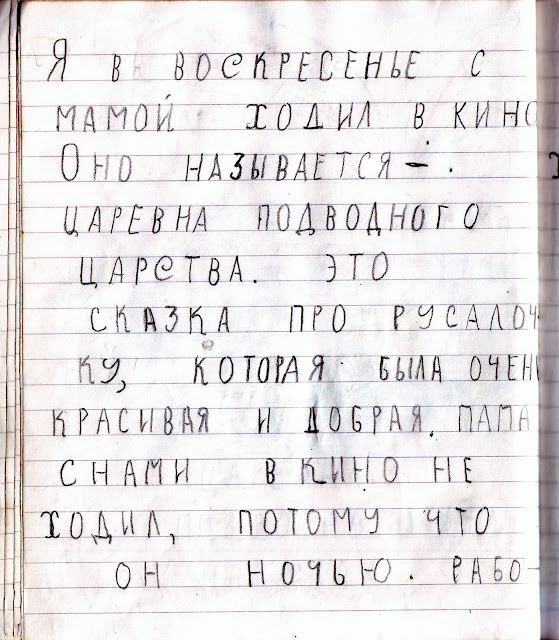 Я В ВОСКРЕСЕНЬЕ С
МАМОЙ ХОДИЛ В КИНО
ОНО НАЗЫВАЕТСЯ – .
ЦАРЕВНА ПОДВОДНОГО
ЦАРСТВА. ЭТО
СКАЗКА ПРО РУСАЛОЧ-
КУ, КОТОРАЯ БЫЛА ОЧЕНЬ
КРАСИВАЯ И ДОБРАЯ. ПАПА
СНАМИ В КИНО НЕ
ХОДИЛ, ПОТОМУ ЧТО
ОН НОЧЬЮ. РАБО-